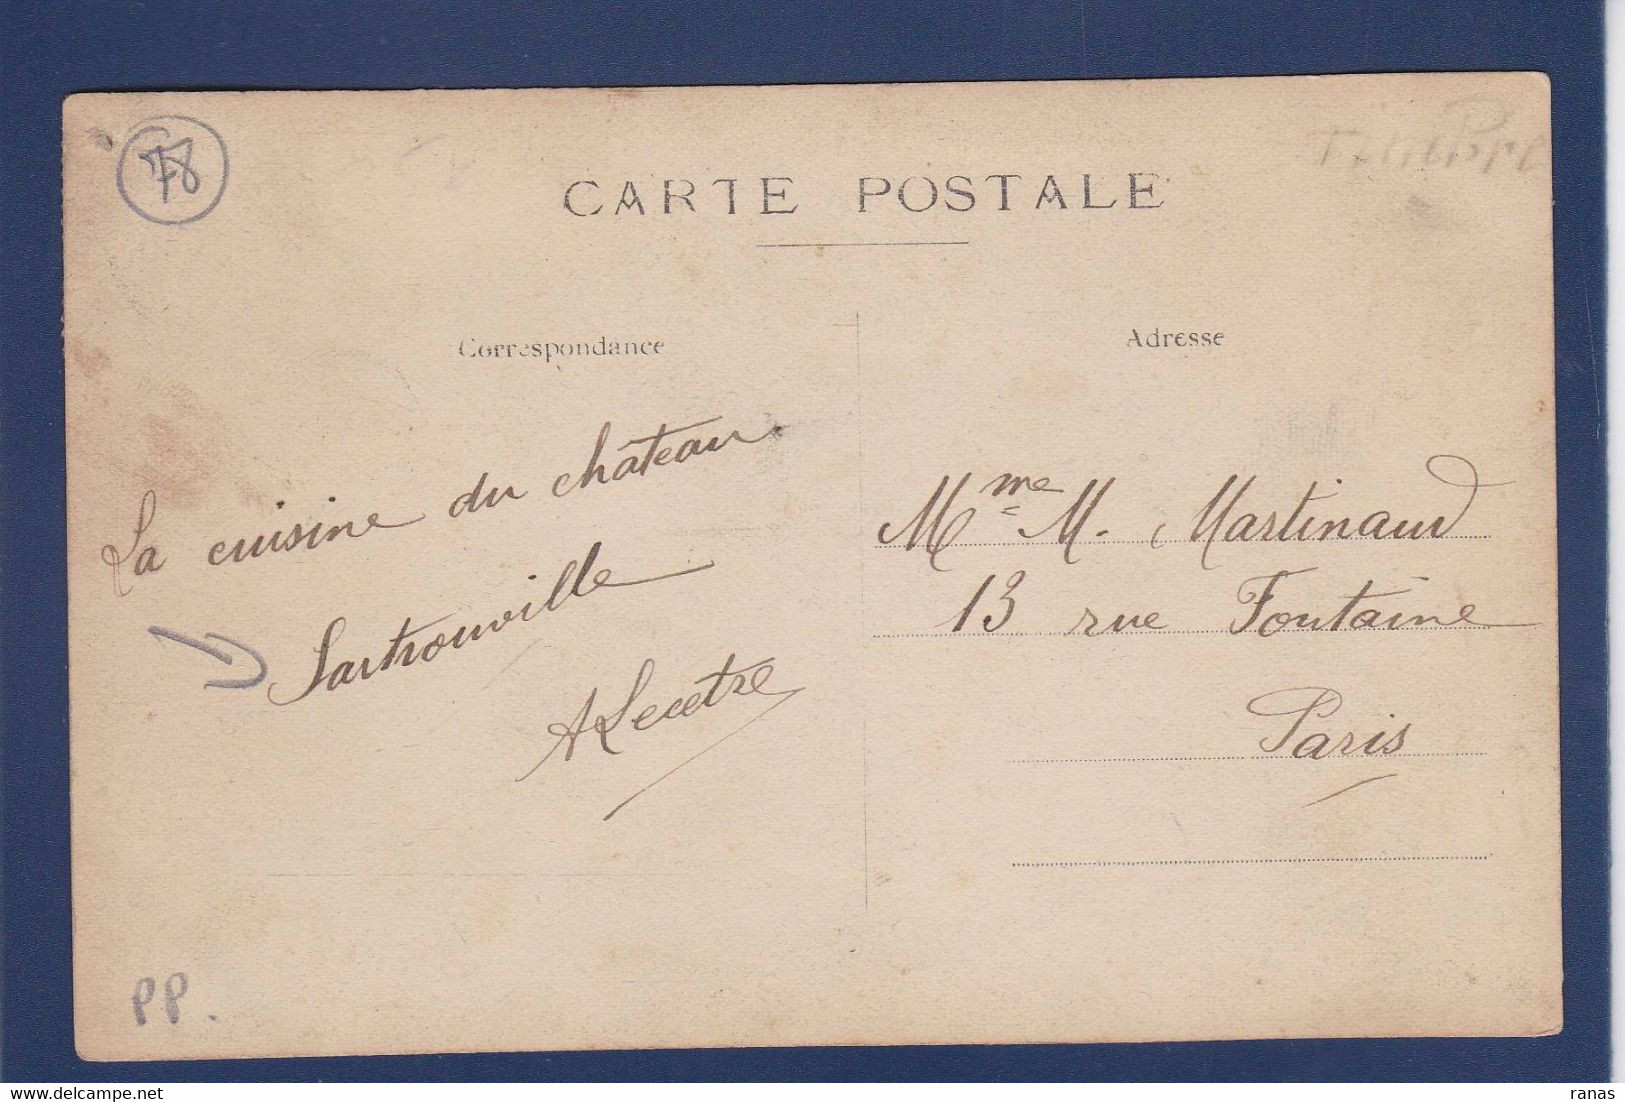 78
Timbre
CARTE POSTALE
Correspondance
Adresse
La cuisine du château
Sartrouville
ALecetre
Mme M. Martinaud
13 rue Fontaine
Paris
PP.
ranas